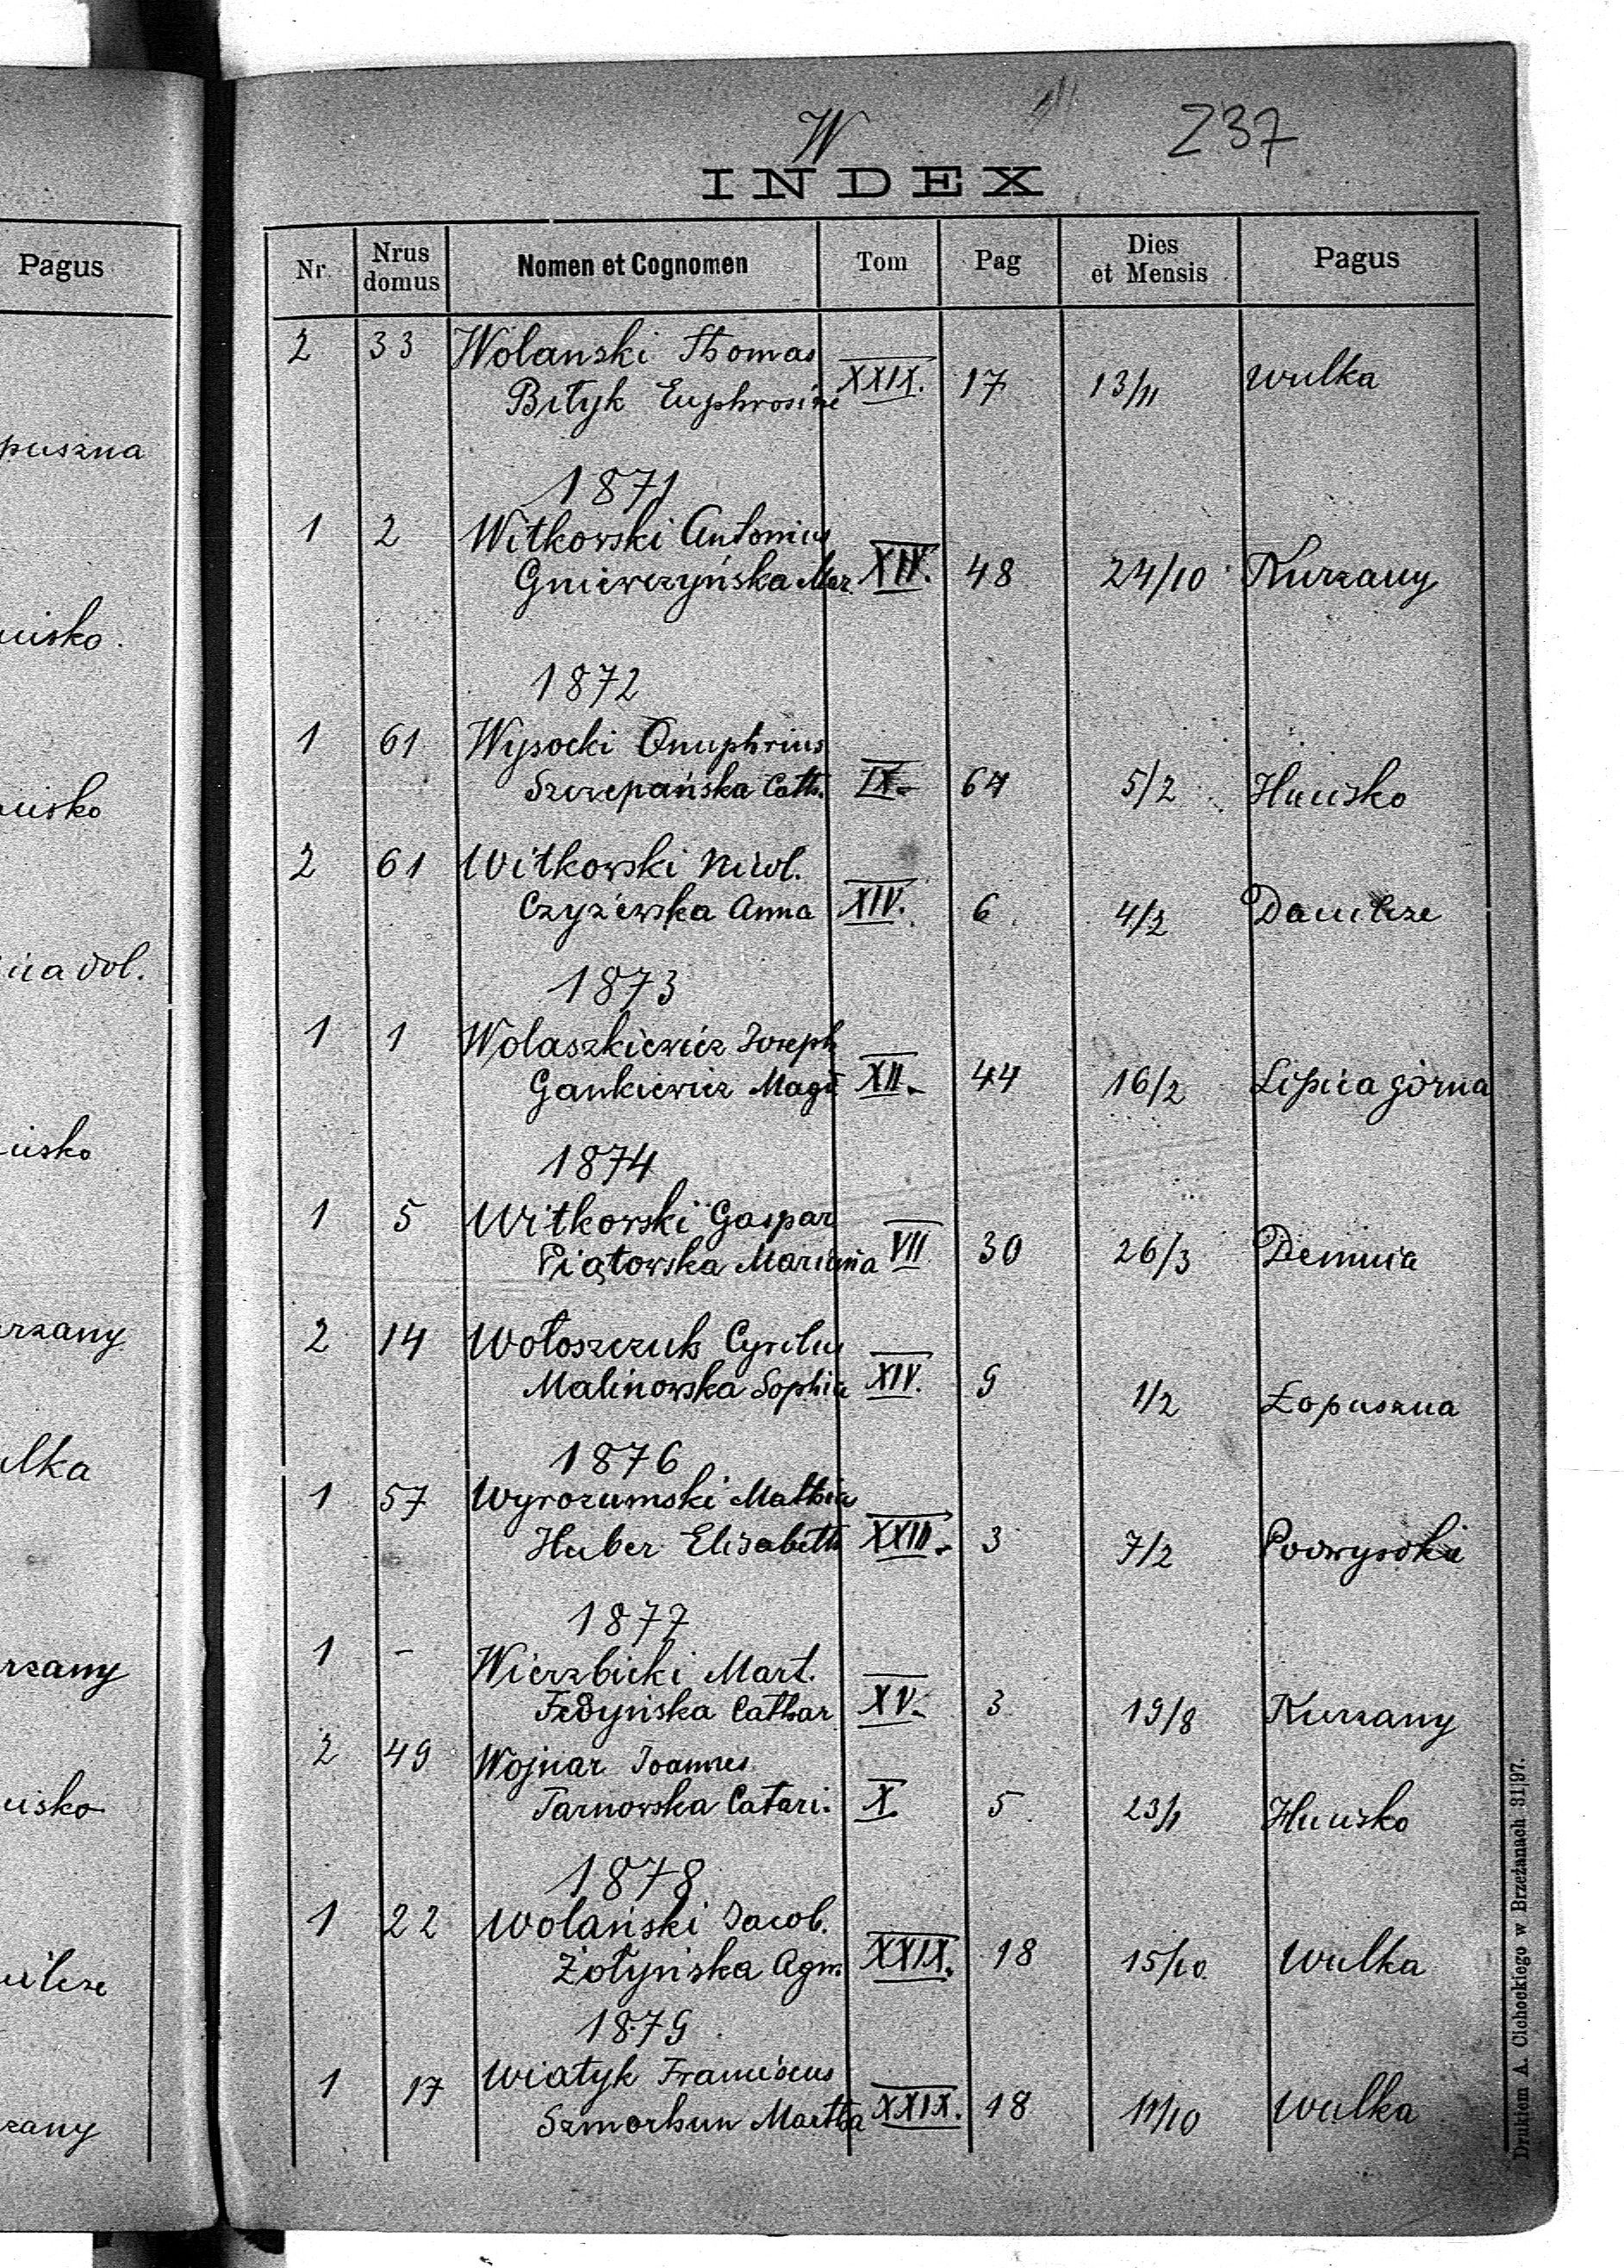 Pagus
puszna
uisko.
uisko
ica dol.
uisko
rzany
ulka
rzany
uisko
ilcze
zany
W
237
INDEX
Nr Nrus domus Nomen et Cognomen Tom Pag Dies et Mensis Pagus
2 33 Wolanski Thomas
Bełyk Euphrosine XXIX. 17 13/11 Wulka
1871
1 2 Witkowski Antonius
Gniewczyńska Mar. XIV. 48 24/10 Kurzany
1872
1 61 Wysocki Onuphrius
Szczepańska Cath. IX. 64 5/2 Hucisko
2 61 Witkowski Nicol.
Czyżewska Anna XIV. 6 4/2 Danilcze
1873
1 1 Wolaszkiewicz Joseph
Gankiewicz Magd XII. 44 16/2 Lipica górna
1874
1 5 Witkowski Gaspar
Piątowska Marianna VII 30 26/3 Demnia
2 14 Wołoszczuk Cyrilus
Malinowska Sophia XIV. 9 1/2 Łopuszna
1876
1 57 Wyrozumski Mathia
Huber Elisabeth XXIII. 3 7/2 Podwysokie
1877
1 - Wierzbicki Mart.
Fedyńska Cathar XV. 3 19/8 Kurzany
2 49 Wojnar Joannes
Tarnowska Catari. X. 5 23/1 Hucisko
1878
1 22 Wolański Jacob.
Żołyńska Agn. XXIX. 18 15/10 Wulka
1879
1 17 Wiatyk Franciscus
Szmorhun Martha XXIX. 18 11/10 Wulka
Drukiem A. Cichockiego w Brzeżanach 31|97.